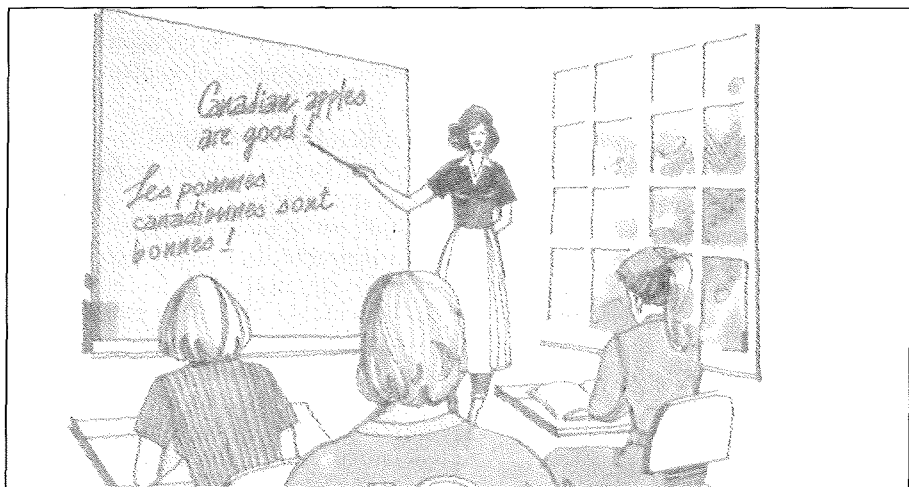 Canadian apples
are good !
Les pommes
canadiennes sont
bonnes !